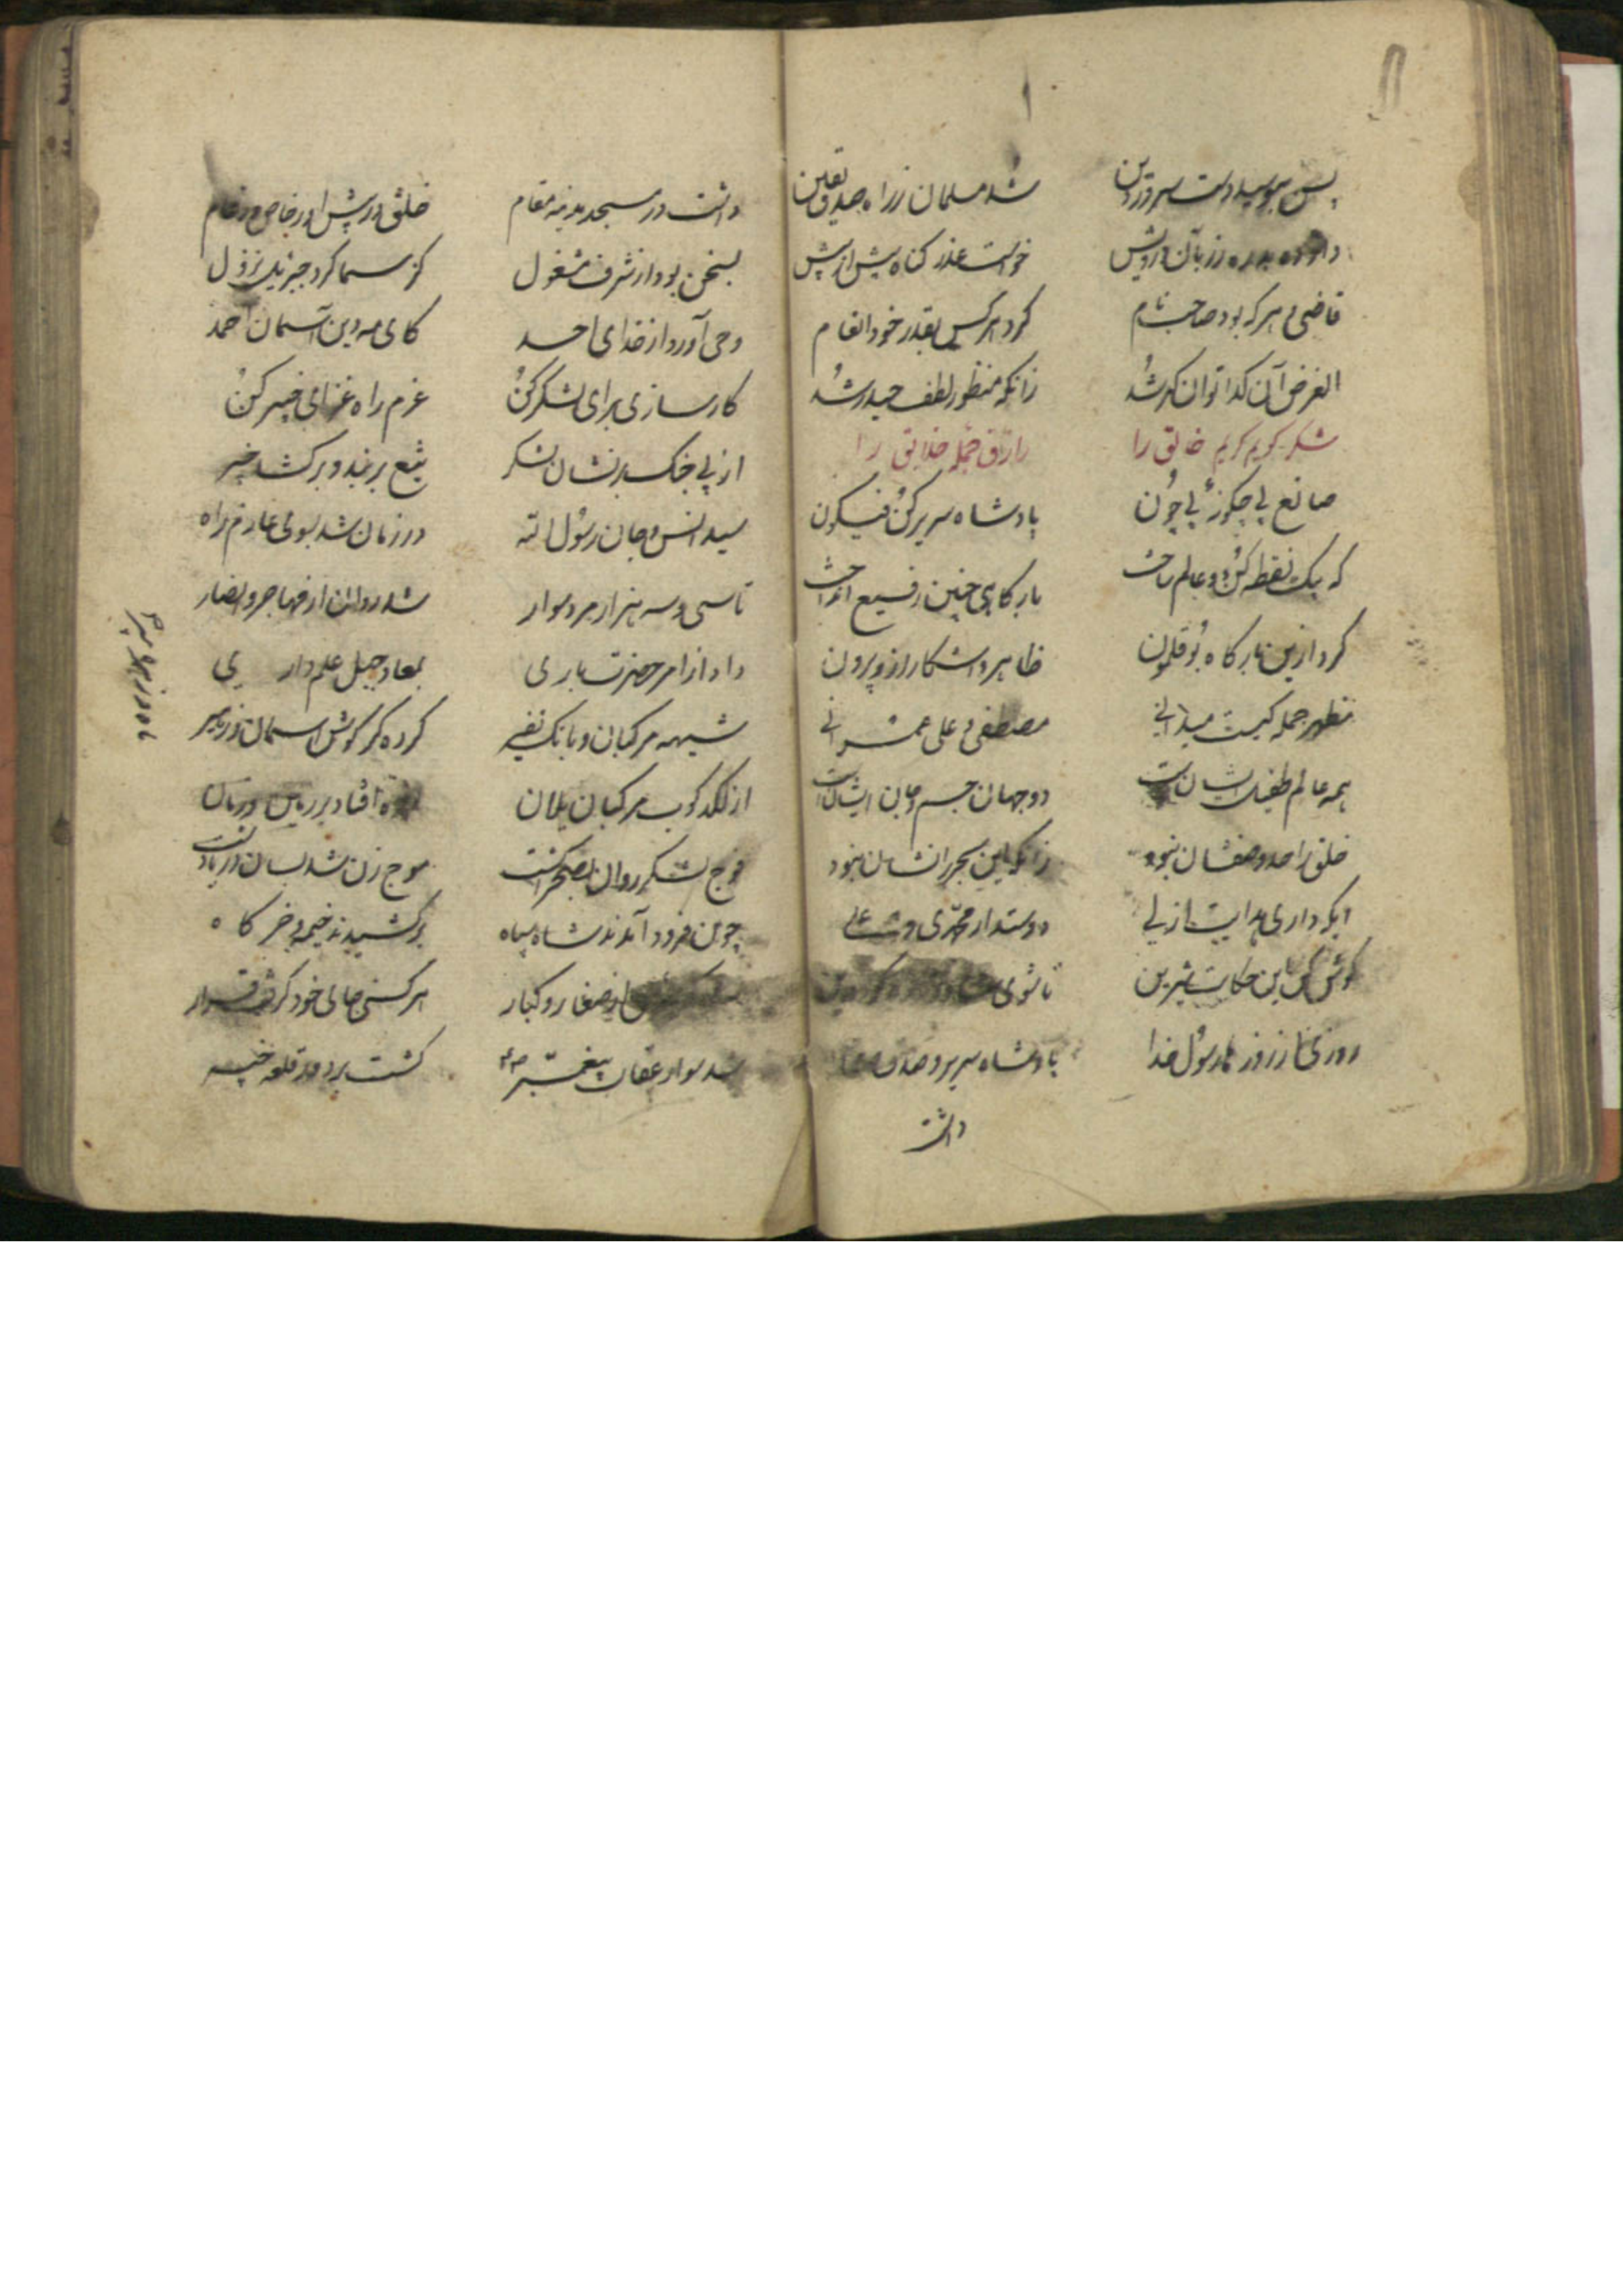 پس ببوسید دست سرور دین شد مسلمان ز راه صدق یقین
داد ده بدره زر بآن درویش خواست عذر گناه بیش از پیش
قاضی و هر که بود صاحب نام کرد هر کس بقدر خود انعام
الغرض آن گدا توانگر شد زانکه منظور لطف حیدر شد
شکر کریم کریم خالق را رازق جمله خلایق را
صانع بی چگونهٔ بی چون پادشاه سریر کن فیکون
که بیک نقطه کن دو عالم ساخت بارگاهی چنین رفیع افراخت
کرد ازین بارگاه بوقلمون ظاهر و آشکار از و بیرون
مظهر جمله کیست میدانی مصطفی و علی عمرانی
همه عالم طفیل ایشان است دو جهان جسم و جان ایشان است
خلق را حد وصفشان نبود زانکه این بحر را نشان نبود
ایکه داری هدایت ازلی دوستدار محمدی و علی
گوش کن این حکایت شیرین تا شوی
روزی از روزها رسول خدا پادشاه سریر و صدق و صفا
داشت
داشت در مسجد مدینه مقام خلق در پیش او ز خاص و ز عام
بسخن بود از شرف مشغول کز سما کرد جبرئیل نزول
وحی آورد از خدای احد کای مه دین آسمان احمد
کارسازی برای لشکر کن عزم راه غزای خیبر کن
از پی جنگ بر نشان لشکر تیغ بر بند و برکش
سید انس و جان رسول الله در زمان شد بسوی عازم راه
تا سی و سه هزار مرد سوار شد روان از مهاجر و انصار
داد از امر حضرت باری بمعاد جبل علم داری
شیهه مرکبان و بانگ نفیر کرده کر گوش آسمان
از لگدکوب مرکبان یلان لرزه افتاد بر زمین و زمان
فوج لشکر روان بصحرا گشت موج زن شد بسان دریا دشت
چون فرود آمدند شاه و سپاه برکشیدند خیمه و خرگاه
از صغار و کبار هر کسی جای خود گرفت قرار
شد سوار عقاب پیغمبر گشت بر دور قلعه خیبر